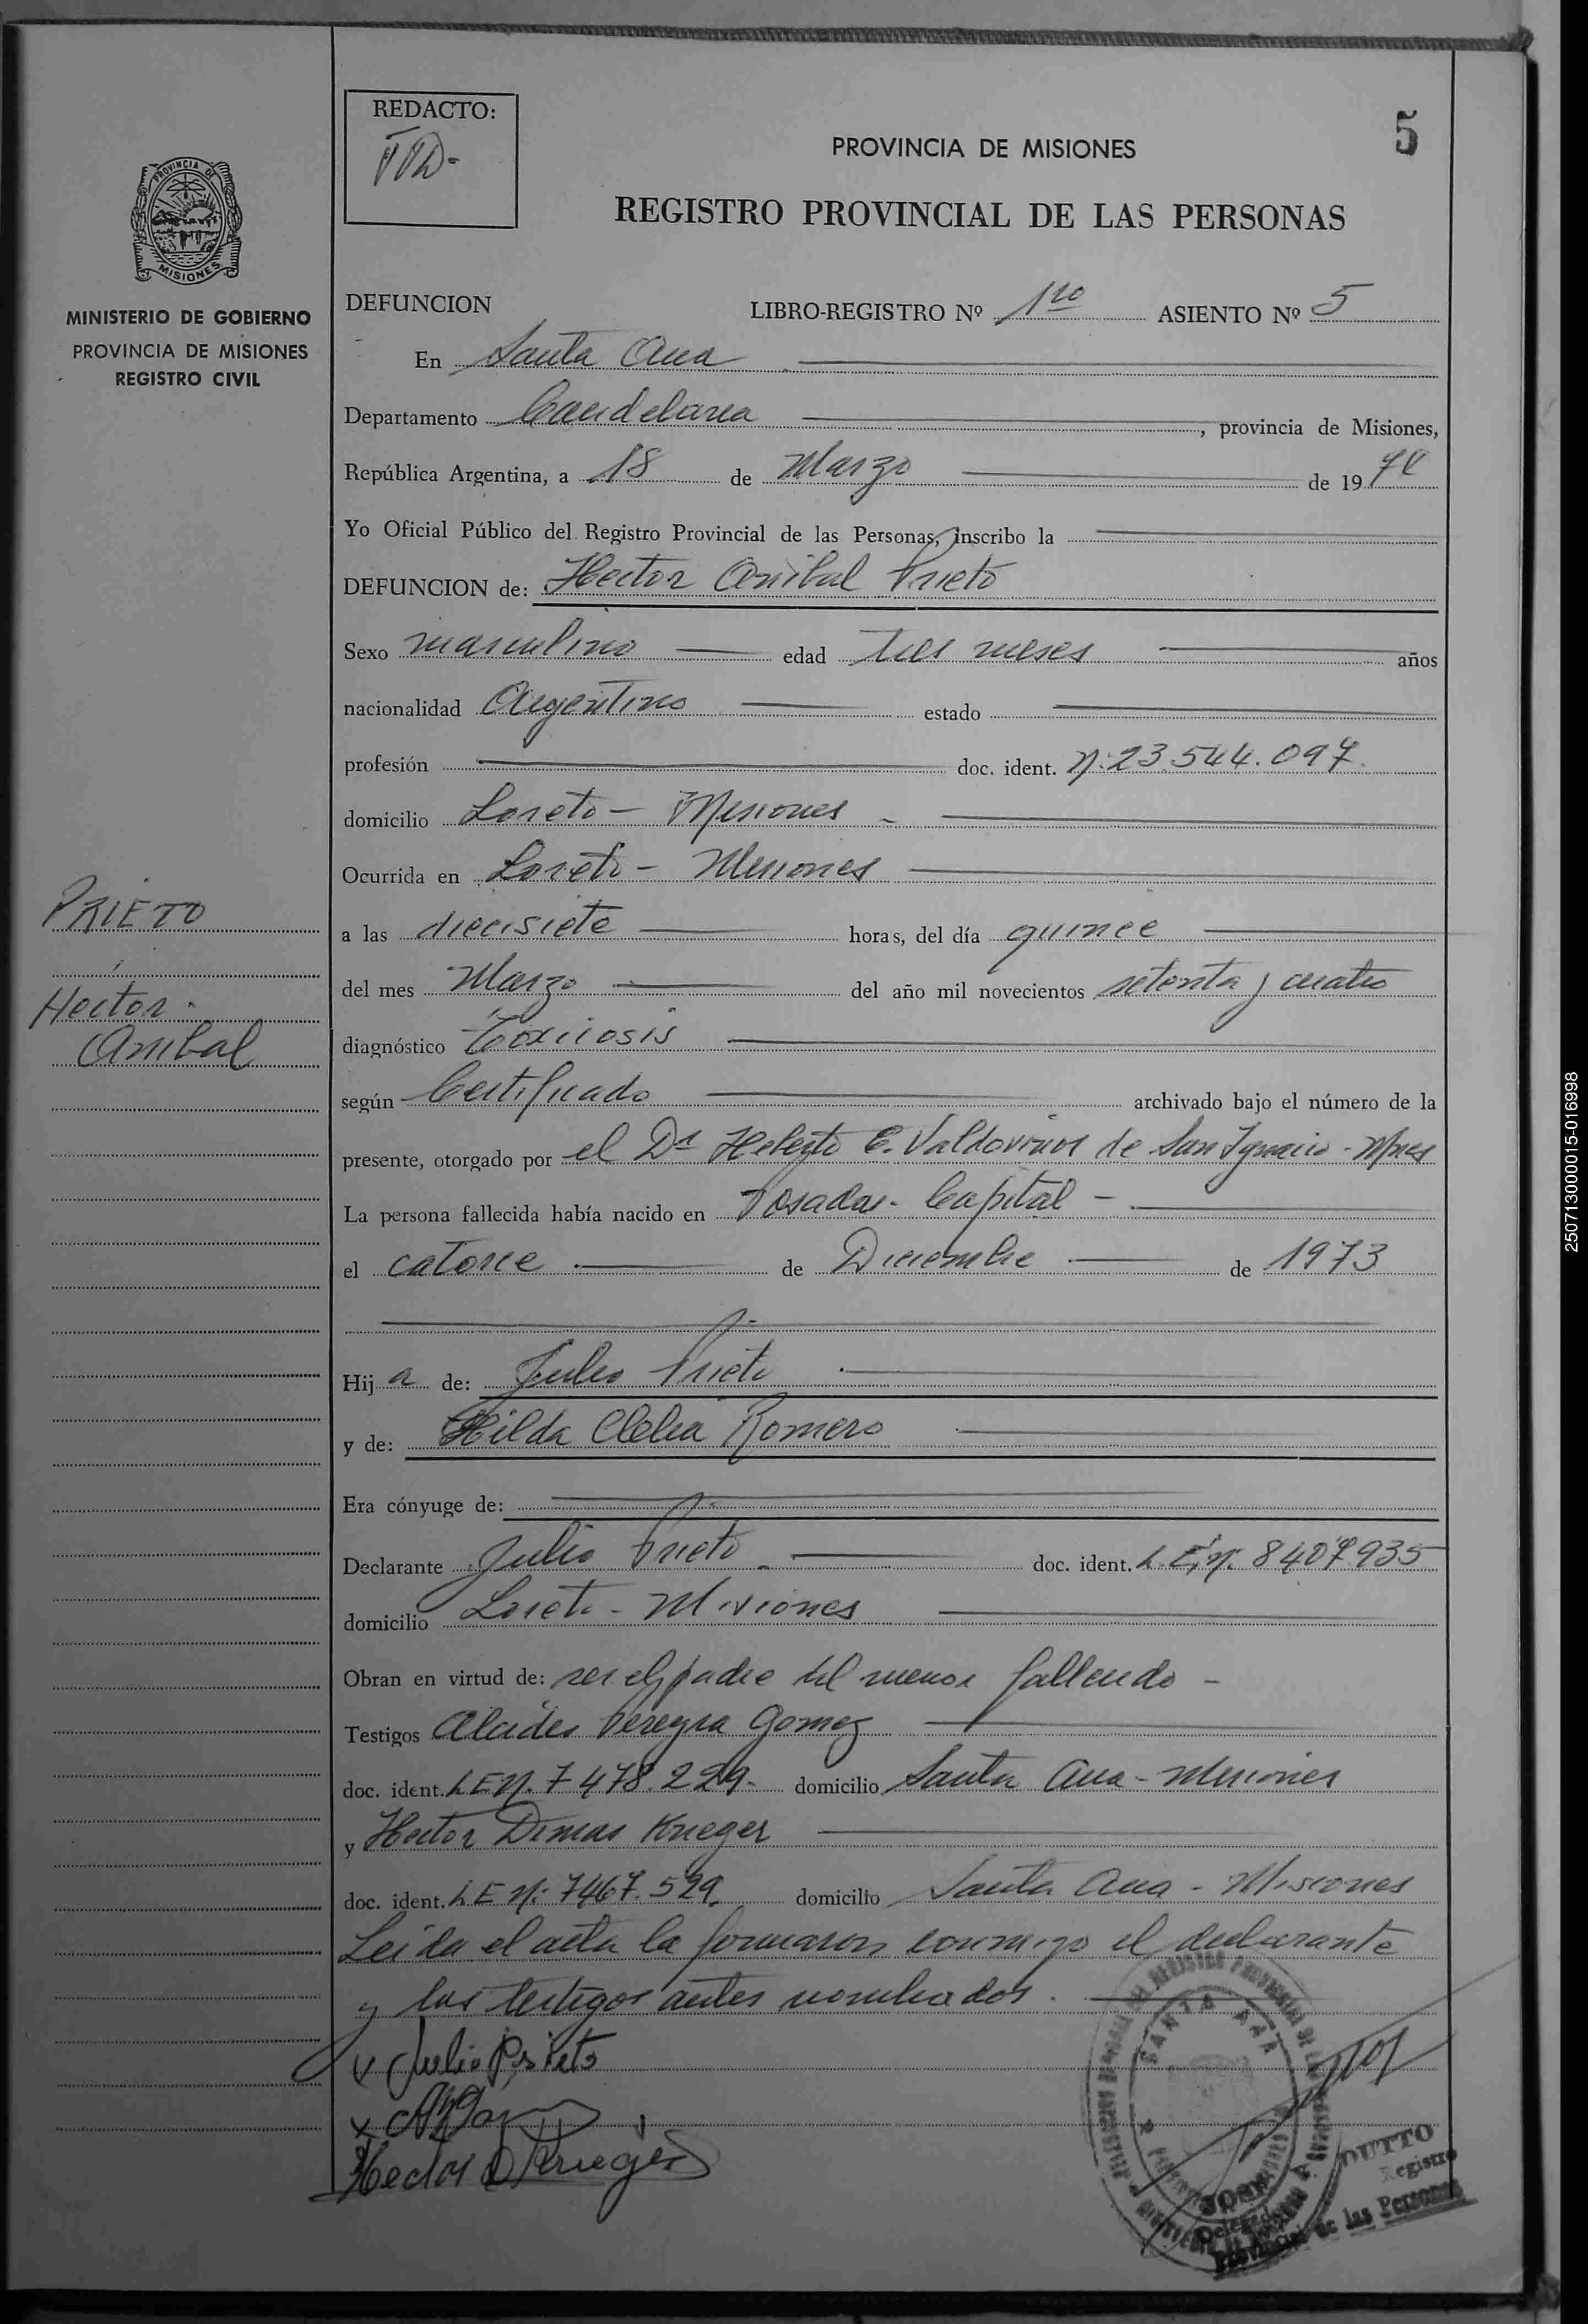 REDACTO:
5
PROVINCIA DE MISIONES
REGISTRO PROVINCIAL DE LAS PERSONAS
PROVINCIA DE
MISIONES
MINISTERIO DE GOBIERNO
PROVINCIA DE MISIONES
REGISTRO CIVIL
DEFUNCION LIBRO-REGISTRO Nº 1ro ASIENTO Nº 5
En Santa Ana
Departamento Candelaria, provincia de Misiones,
República Argentina, a 18 de Marzo de 1974
Yo Oficial Público del Registro Provincial de las Personas, inscribo la
DEFUNCION de: Hector Anibal Prieto
Sexo masculino edad tres meses años
nacionalidad Argentino estado
profesión doc. ident. Nº 23.544.097.
domicilio Loreto - Misiones
Ocurrida en Loreto - Misiones
PRIETO
Hector
Anibal
a las diecisiete horas, del día quince
del mes Marzo del año mil novecientos setenta y cuatro
diagnóstico toxicosis
según Certificado archivado bajo el número de la
presente, otorgado por el Dr E. Valdovinos de San Ignacio - Mnes
La persona fallecida había nacido en Posadas - Capital -
el catorce de Diciembre de 1973
Hij a de: Julio Prieto
y de: Hilda Clelia Romero
Era cónyuge de:
Declarante Julio Prieto doc. ident. L.E.Nº 8407935
domicilio Loreto - Misiones
Obran en virtud de: ser el padre del menor fallecido -
Testigos Alcides Pereyra Gomez
doc. ident. L E Nº 7 478.229 - domicilio Santa Ana - Misiones
y Hector Dimas Krieger
doc. ident. L E Nº 7467.529. domicilio Santa Ana - Misiones
Leida el acta la firmaron conmigo el declarante
y los testigos antes nombrados.
Julio Prieto
Hector D Krieger
SANTA ANA
JOSE DUTTO
Delegado Registro
Provincial de las Personas
250713000015-016998